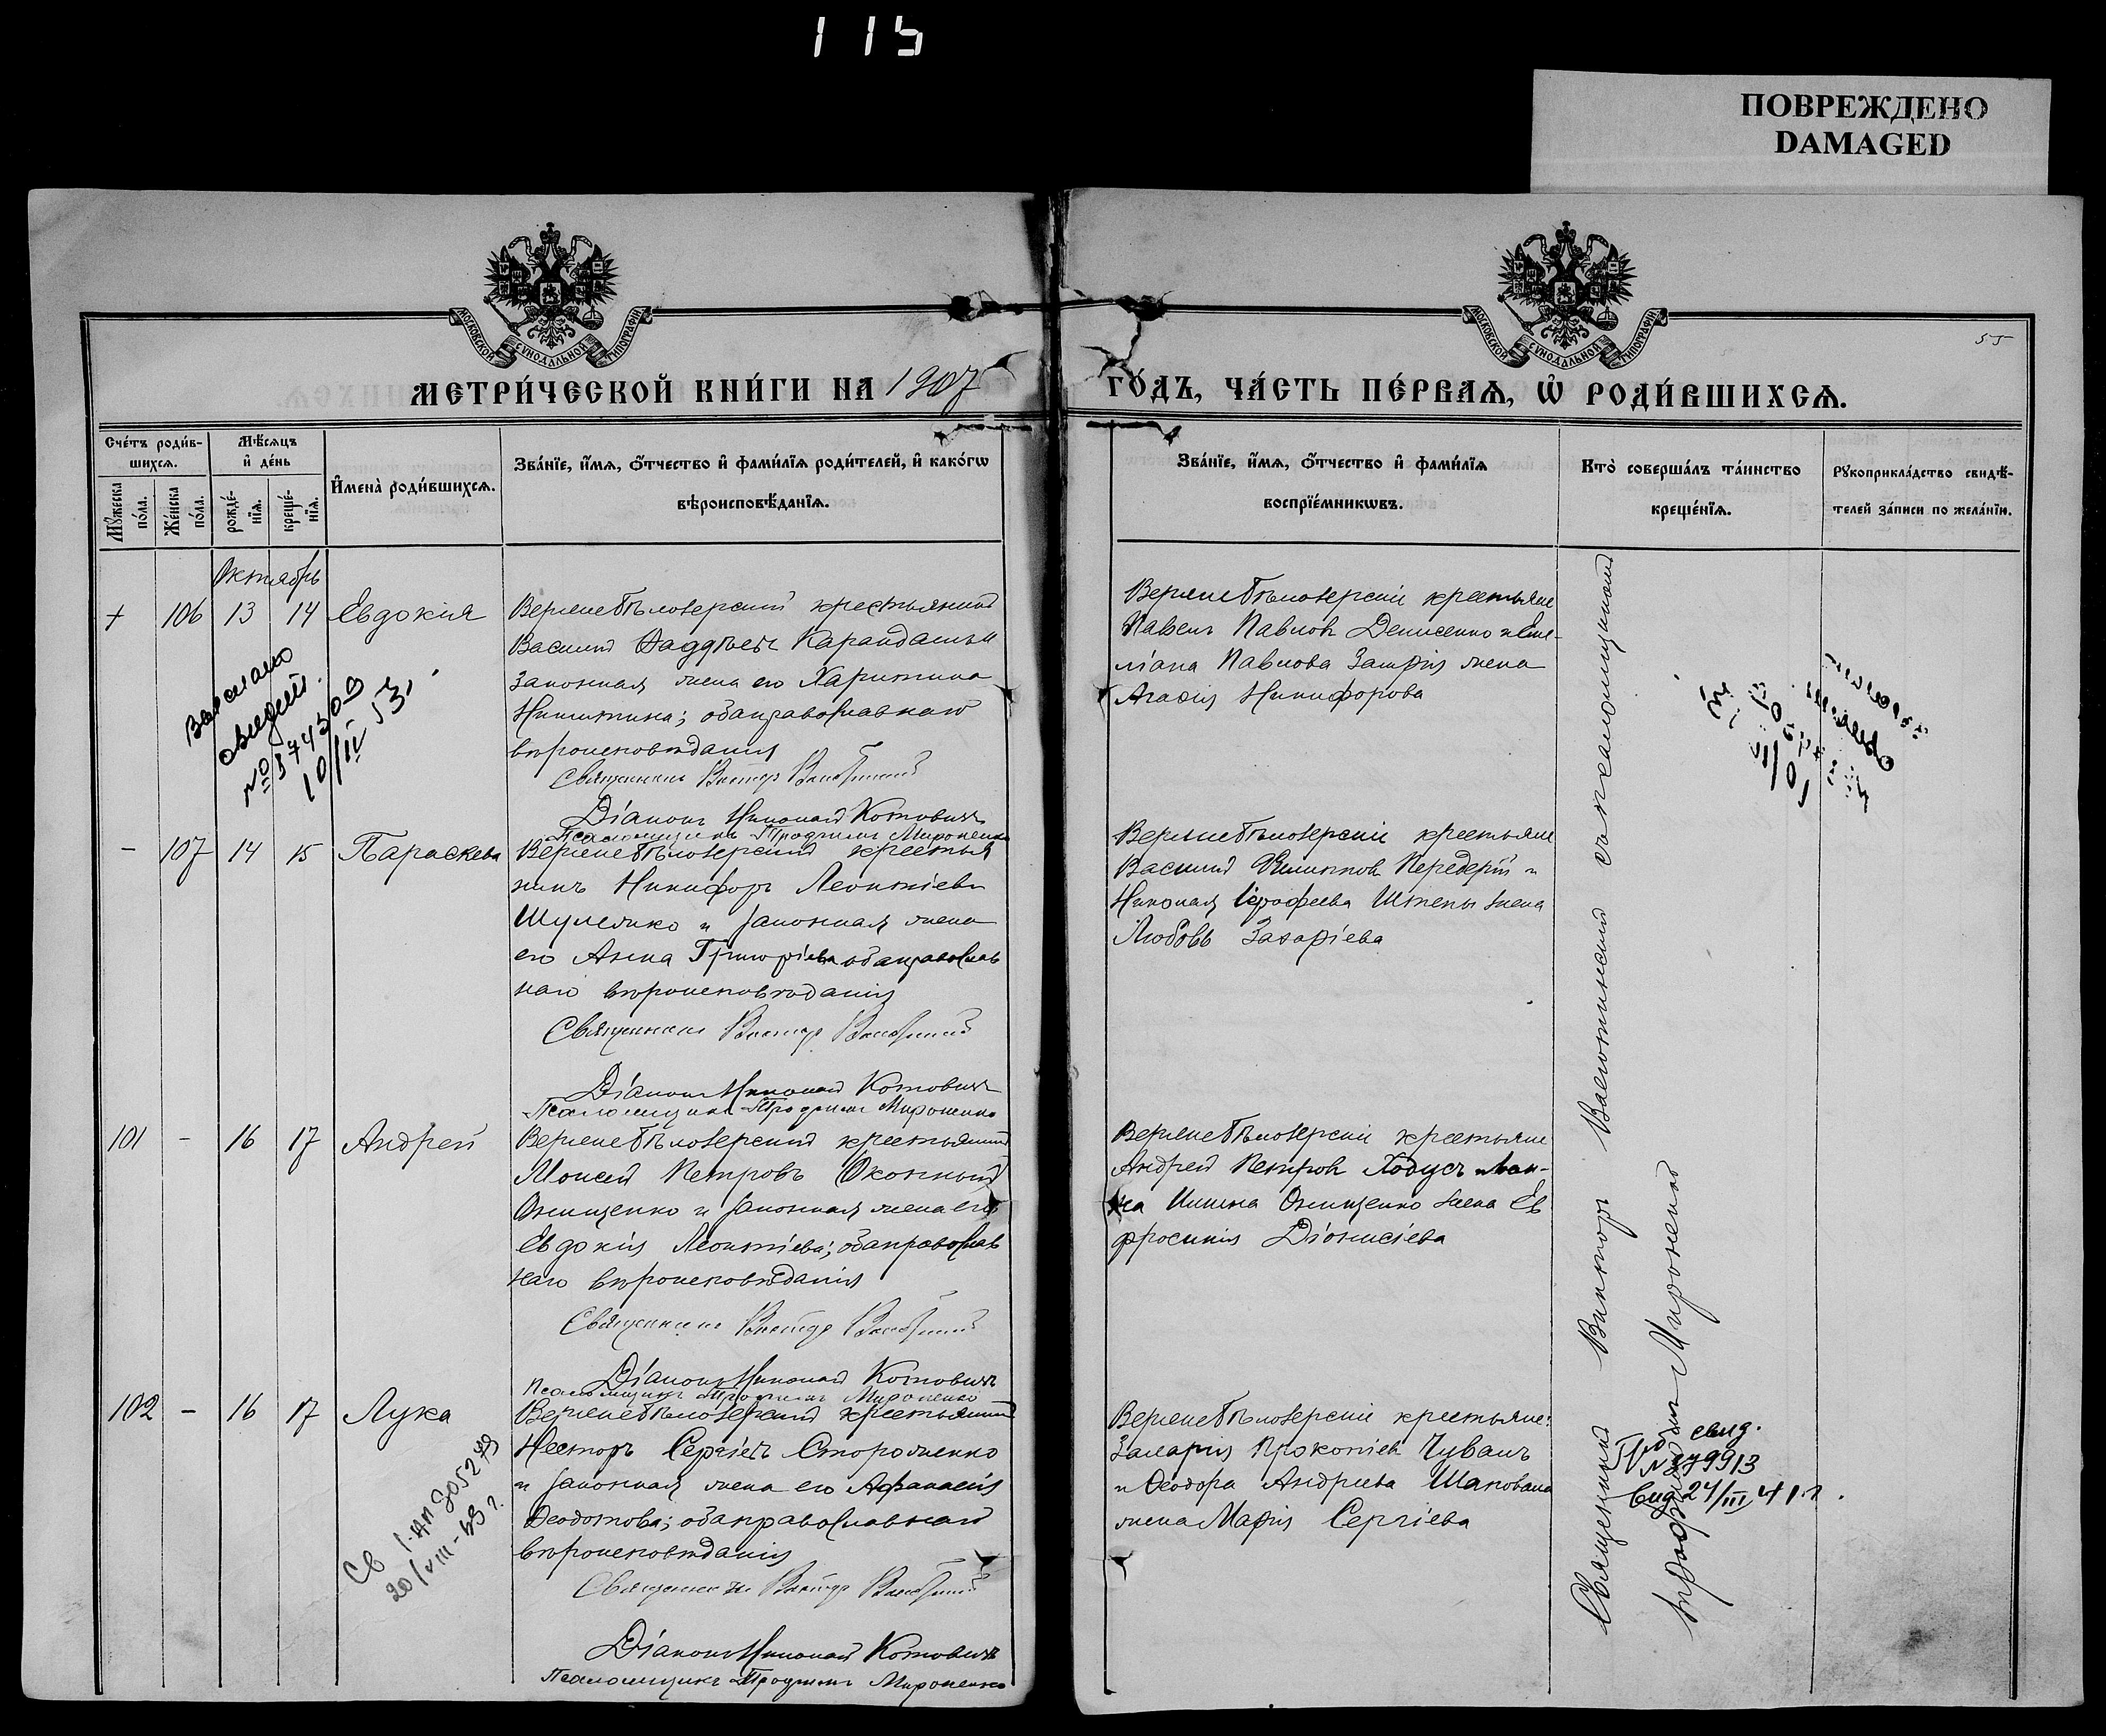 115
ПОВРЕЖДЕНО
DAMAGED
МОСКОВСКОЙ СѴНОДАЛЬНОЙ ТИПОГРАФІИ
МОСКОВСКОЙ СѴНОДАЛЬНОЙ ТИПОГРАФІИ
55
МЕТРИ́ЧЕСКОЙ КНИ́ГИ НА 1907
ГО́ДЪ, ЧА́СТЬ ПЕ́РВАѦ, Ѡ҆ РОДИ́ВШИХСѦ.
Сче́тъ роди́в-
шихсѧ.
Мꙋ́жеска по́ла.
Же́нска по́ла.
Мѣ́сѧцъ
и҆ де́нь
рожде́-
нїѧ.
креще́-
нїѧ.
И҆мена̀ роди́вшихсѧ.
Зва́нїе, и҆́мѧ, ѻ҆́тчество и҆ фами́лїѧ роди́телей, и҆ како́гѡ
вѣроисповѣ́данїѧ.
Зва́нїе, и҆́мѧ, ѻ҆́тчество и҆ фами́лїѧ
воспрїе́мникѡвъ.
Кто̀ соверша́лъ та́инство
креще́нїѧ.
Рꙋкоприкла́дство свидѣ́-
телей за́писи по жела́нїю.
Октябрь
+ 106 13 14 Евдокія
Верхнебѣлозерскій крестьянинъ
Василій Ѳаддѣевъ Карандашъ и
Законная жена его Харитина
Никитина; оба православнаго
вѣроисповѣданія
Священникъ Викторъ
Діаконъ Николай Котовичъ
Псаломщикъ Трофимъ Мироненко
Верхнебѣлозерскіе крестьяне
Павелъ Павловъ Денисенко и Еме-
ліана Павлова жена
Агафія Никифорова
Выслано
свидет.
№ 874300
10/IV 53.
- 107 14 15 Параскева
Верхнебѣлозерскій крестья
нинъ Никифоръ Леонтіевъ
Шулежко и законная жена
его Анна Григоріева оба православ
наго вѣроисповѣданія
Священникъ Викторъ
Діаконъ Николай Котовичъ
Псаломщикъ Трофимъ Мироненко
Верхнебѣлозерскіе крестьяне
Василій Филиповъ Передерій и
Николая Іерофеева Штепы жена
Любовь Захаріева
101 - 16 17 Андрей
Верхнебѣлозерскій крестьянинъ
Моисей Петровъ Оконный
Онищенко и законная жена его
Евдокія Леонтіева; оба православ
наго вѣроисповѣданія
Священникъ Викторъ
Діаконъ Николай Котовичъ
Псаломщикъ Трофимъ Мироненко
Верхнебѣлозерскіе крестьяне
Андрей Петровъ Ходусъ и Іоан-
на Ильина Онищенко жена Ев
фросинія Діонисіева
102 - 16 17 Лука
Верхнебѣлозерскій крестьянинъ
Несторъ Сергіевъ Стороженко
и законная жена его Афанасія
Ѳеодотова; оба православнаго
вѣроисповѣданія
Священникъ Викторъ
Діаконъ Николай Котовичъ
Псаломщикъ Трофимъ Мироненко
Верхнебѣлозерскіе крестьяне:
Захарій Прокопіевъ Чувашъ
и Ѳеодора Андреева Шаповала
жена Марія Сергіева
Св
20/VIII-
Священникъ Викторъ съ псаломщикомъ
Трофимомъ Мироненко
свид.
№ 279913
Выд 24/III 41 г.